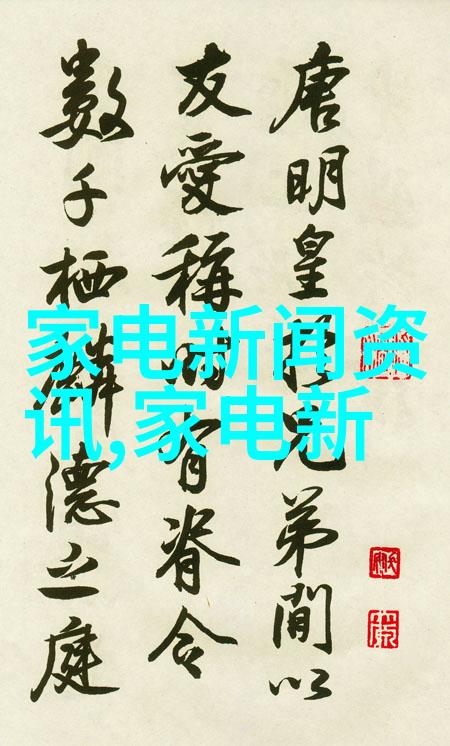 唐明皇兄弟間以
友愛稱有脊令
數千栖麟德之庭
家电新闻资
讯,家电新